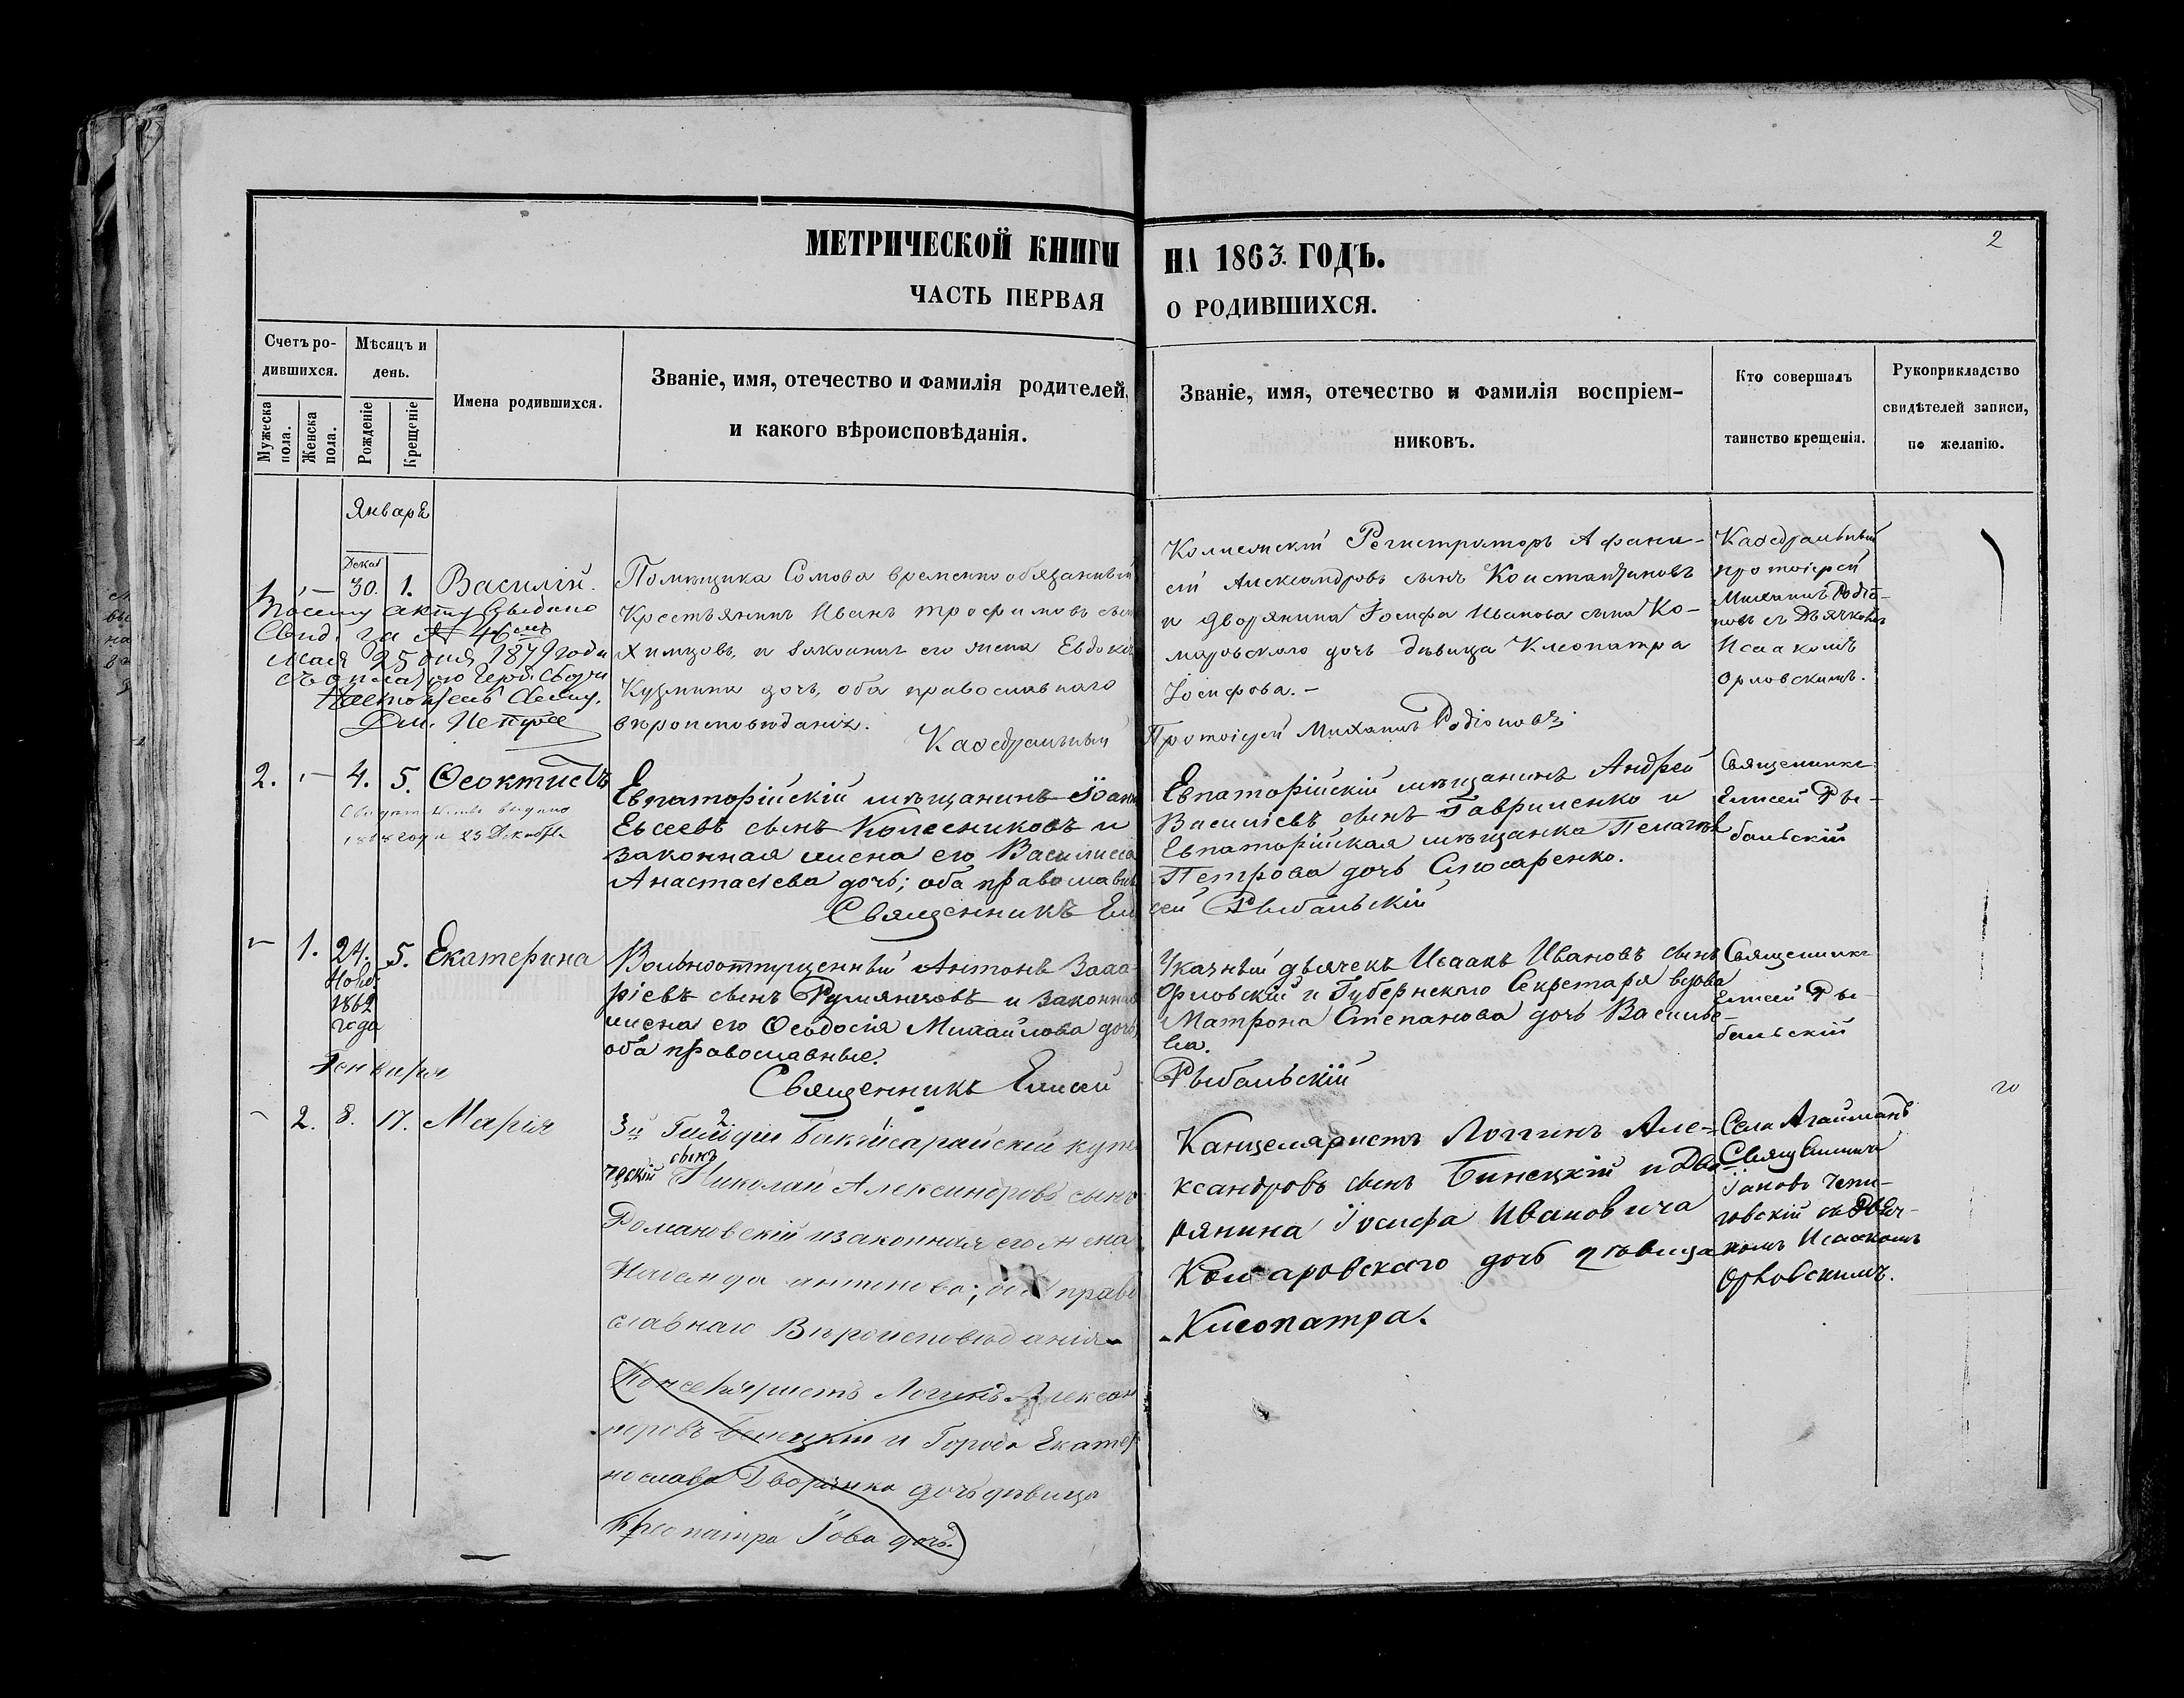 2
МЕТРИЧЕСКОЙ КНИГИ НА 1863. ГОДЪ.
ЧАСТЬ ПЕРВАЯ О РОДИВШИХСЯ.
Счетъ ро-
дившихся.
Мужеска пола.
Женска пола.
Мѣсяцъ и
день.
Рожденіе
Крещеніе
Имена родившихся.
Званіе, имя, отечество и фамилія родителей,
и какого вѣроисповѣданія.
Званіе, имя, отечество и фамилія воспріем-
никовъ.
Кто совершалъ
таинство крещенія.
Рукоприкладство
свидѣтелей записи,
по желанію.
Январь
Декаб
1. – 30. 1. Василій.
По сему акту выдано
Свид. за № 46
Мая 25 дня 1879 года
Помѣщика Сомова временно обязанный
Крестьянинъ Иванъ Трофимовъ сынъ
Химцовъ, и законная его жена Евдокія
Кузмина дочь, оба православнаго
вѣроисповѣданія.
Кафедральный
Колежскій Регистраторъ Афана-
сій Александровъ сынъ Константиновъ
и дворянина Іосифа Иванова сына Ко-
маровскаго дочь дѣвица Клеопатра
Іосифова. –
Протоіерей Михаилъ Родіоновъ
Кафедральный
протоіерей
Михаилъ Родіо-
новъ съ Дьячкомъ
Исаакомъ
Орловскимъ.
2. – 4. 5. Ѳеоктистъ
выдано
23 Декабря
Евпаторійскій мѣщанинъ Іоаннъ
Евсеевъ сынъ Колесниковъ и
законная жена его Василисса
Анастасіева дочь; оба православные
Священникъ Ели
Евпаторійскій мѣщанинъ Андрей
Василіевъ сынъ Гавриленко и
Евпаторійская мѣщанка Пелагія
Петрова дочь Слюсаренко.
сей Рыбальскій
Священникъ
Елисей Ры-
бальскій
– 1. 24. 5. Екатерина
Нояб.
1862
года
Вольноотпущенный Антонъ Заха-
ріевъ сынъ Румянцовъ и законная
жена его Ѳеодосія Михайлова дочь,
оба православные.
Священникъ Елисей
Указный дьячекъ Исаакъ Ивановъ сынъ
Орловскій и Губернскаго Секретаря вдова
Матрона Степанова дочь Василье-
ва.
Рыбальскій
Священникъ
Елисей Ры-
бальскій
Генваря
– 2. 8. 17. Марія
3й Гильдіи Бакчисарайскій купе
ческій сынъ Николай Александровъ сынъ
Романовскій и законная его жена
Надежда Антонова; оба право
славнаго Вѣроисповѣданія
Логинъ Алексан
дровъ Бинецкій и Города Екатер
нослава Дворянка дочь дѣвица
Клеопатра Іова дочь.
Канцеляристъ Логгинъ Але-
ксандровъ сынъ Бинецкій и Дво-
рянина Іосифа Ивановича
Комаровскаго дочь дѣвица
Клеопатра.
Села Агайманъ
Священникъ
Іаковъ Черни-
говскій съ Дьяч-
комъ Исаакомъ
Орловскимъ.